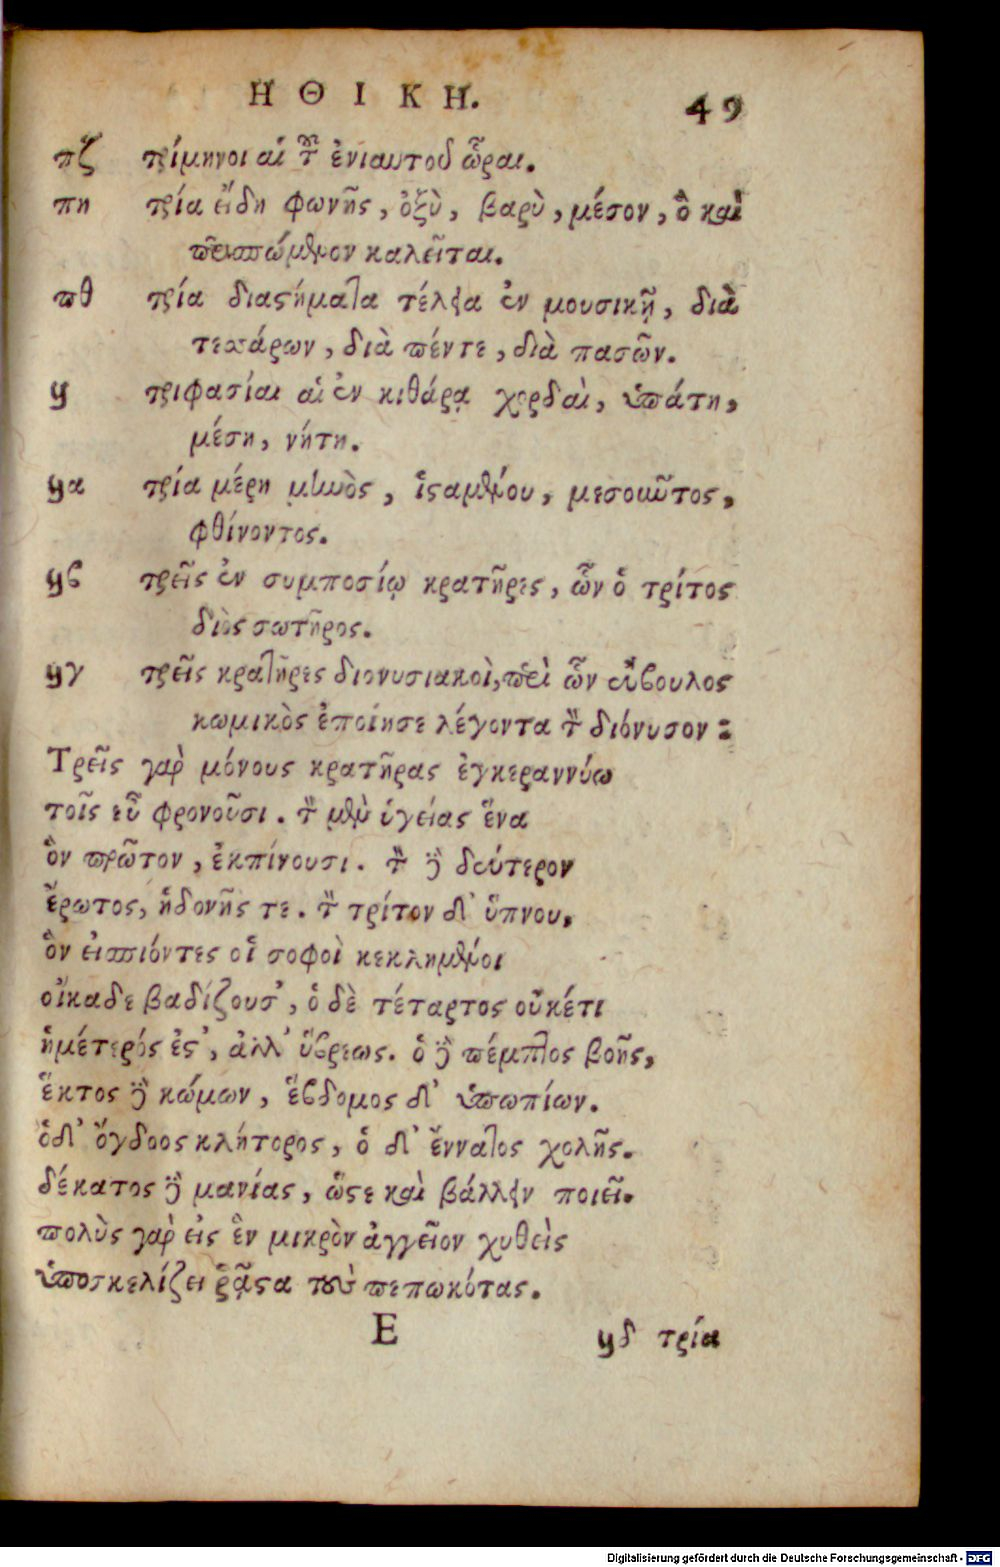 ΗΘΙΚΗ. 49
πζ τρίμηνοι αἱ τοῦ ἐνιαυτοῦ ὧραι.
πη τρία εἴδη φωνῆς, ὀξὺ, βαρὺ, μέσον, ὃ καὶ
περισπώμενον καλεῖται.
πθ τρία διαστήματα τέλεια ἐν μουσικῇ, διὰ
τεσσάρων, διὰ πέντε, διὰ πασῶν.
ϟ τριφασίαι αἱ ἐν κιθάρᾳ χορδαὶ, ὑπάτη,
μέση, νήτη.
ϟα τρία μέρη μηνὸς, ἱσταμένου, μεσοῦντος,
φθίνοντος.
ϟβ τρεῖς ἐν συμποσίῳ κρατῆρες, ὧν ὁ τρίτος
διὸς σωτῆρος.
ϟγ τρεῖς κρατῆρες διονυσιακοὶ, περὶ ὧν εὔβουλος
κωμικὸς ἐποίησε λέγοντα τὸν διόνυσον:
Τρεῖς γὰρ μόνους κρατῆρας ἐγκεραννύω
τοῖς εὖ φρονοῦσι. τὸν μὲν ὑγείας ἕνα
ὃν πρῶτον, ἐκπίνουσι. τὸν δὲ δεύτερον
ἔρωτος, ἡδονῆς τε. τὸν τρίτον δ' ὕπνου,
ὃν εἰσπιόντες οἱ σοφοὶ κεκλημένοι
οἴκαδε βαδίζουσ', ὁ δὲ τέταρτος οὐκέτι
ἡμέτερός ἐστ', ἀλλ' ὕβρεως. ὁ δὲ πέμπτος βοῆς,
ἕκτος δὲ κώμων, ἕβδομος δ' ὑπωπίων.
ὁ δ' ὄγδοος κλήτορος, ὁ δ' ἔννατος χολῆς.
δέκατος δὲ μανίας, ὥστε καὶ βάλλειν ποιεῖ.
πολὺς γὰρ εἰς ἓν μικρὸν ἀγγεῖον χυθεὶς
ὑποσκελίζει ῥᾷστα τοὺς πεπωκότας.
E ϟδ τρία
Digitalisierung gefördert durch die Deutsche Forschungsgemeinschaft - DFG